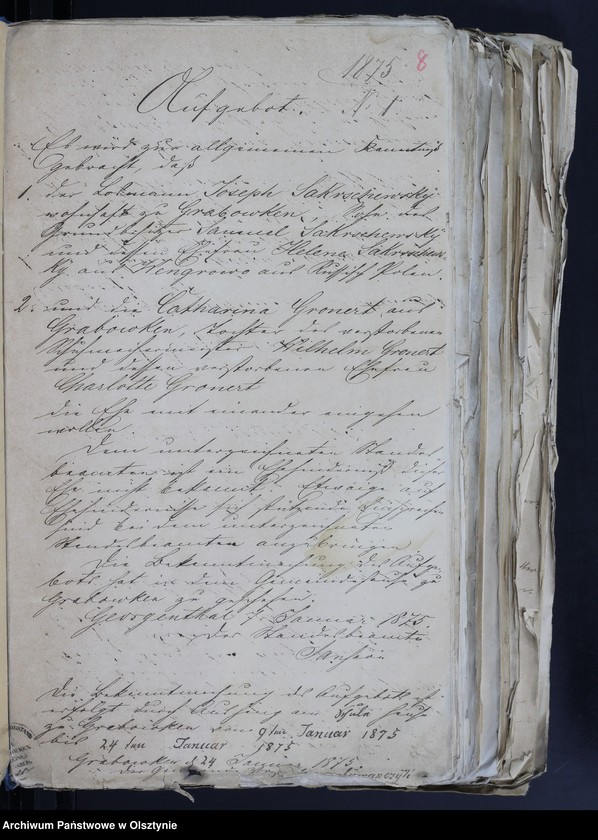 1875 8
Aufgebot. N 1
Es wird zur allgemeinen Kenntniß
gebracht, daß
1. der Losmann Joseph Sakrschewsky
wohnhaft zu Grabowken, Sohn des
Grundbesitzer Samuel Sakrschewsky
und dessen Ehefrau Helene Sakrschews
ky aus Wengrowo aus Russisch Polen.
2. und die Catharina Gronert aus
Grabowken, Tochter des verstorbenen
Wilhelm Gronert
und dessen verstorbenen Ehefrau
Charlotte Gronert
die Ehe mit einander eingehen
wollen.
Dem unterzeichneten Standes
beamten ist ein Ehehinderniß dieser
Ehe nicht bekannt. Etwaige auf
Ehehindernisse sich stützende Einsprachen
sind bei dem unterzeichneten
Standesbeamten anzubringen
Die Bekanntmachung des Aufge
bots hat in dem Gemeindehause zu
Grabowken zu geschehen.
Georgenthal 7 Januar 1875
Der Standesbeamte
Die Bekanntmachung des Aufgebots ist
erfolgt durch Aushang am Schuln hause
zu Grabowken vom 9ten Januar 1875
bis 24 ten Januar 1875
Grabowken d 24 Januar 1875
Der Gemeinde
Archiwum Państwowe w Olsztynie